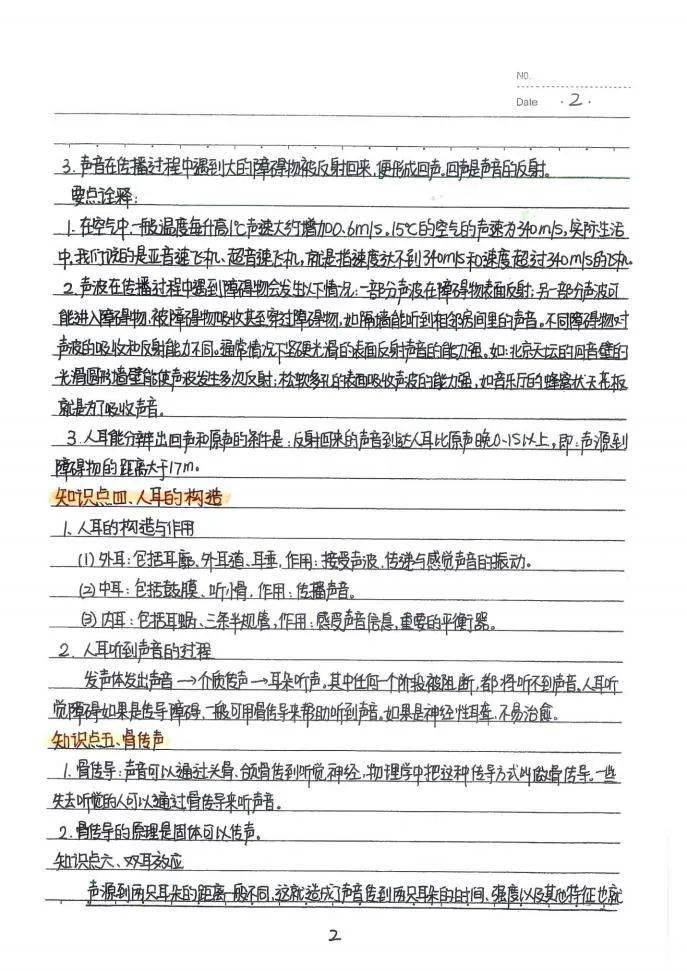 No.
Date ·2·
3. 声音在传播过程中遇到大的障碍物被反射回来,便形成回声。回声是声音的反射。
要点诠释:
1. 在空气中,一般温度每升高1℃声速大约增加0.6m/s。15℃的空气的声速为340m/s,实际生活
中,我们说的是亚音速飞机、超音速飞机,就是指速度达不到340m/s和速度超过340m/s的飞机。
2. 声波在传播过程中遇到障碍物会发生以下情况:一部分声波在障碍物表面反射;另一部分声波可
能进入障碍物,被障碍物吸收甚至穿过障碍物,如隔墙能听到相邻房间里的声音。不同障碍物对
声波的吸收和反射能力不同。通常情况下坚硬光滑的表面反射声音的能力强。如:北京天坛的回音壁的
光滑圆形墙壁能使声波发生多次反射;松软多孔的表面吸收声波的能力强,如音乐厅的蜂窝状天花板
就是为了吸收声音。
3. 人耳能分辨出回声和原声的条件是:反射回来的声音到达人耳比原声晚0.1S以上,即:声源到
障碍物的距离大于17m。
知识点四、人耳的构造
1、人耳的构造与作用
(1) 外耳:包括耳廓、外耳道、耳垂,作用:接受声波,传递与感觉声音的振动。
(2) 中耳:包括鼓膜、听小骨,作用:传播声音。
(3) 内耳:包括耳蜗、三条半规管,作用:感受声音信息,重要的平衡器。
2. 人耳听到声音的过程
发声体发出声音→介质传声→耳朵听声。其中任何一个阶段被阻断,都将听不到声音。人耳听
觉障碍如果是传导障碍,一般可用骨传导来帮助听到声音。如果是神经性耳聋,不易治愈。
知识点五、骨传声
1. 骨传导:声音可以通过头骨、颌骨传到听觉神经,物理学中把这种传导方式叫做骨传导。一些
失去听觉的人可以通过骨传导来听声音。
2. 骨传导的原理是固体可以传声。
知识点六、双耳效应
声源到两只耳朵的距离一般不同,这就造成了声音传到两只耳朵的时间、强度以及其他特征也就
2